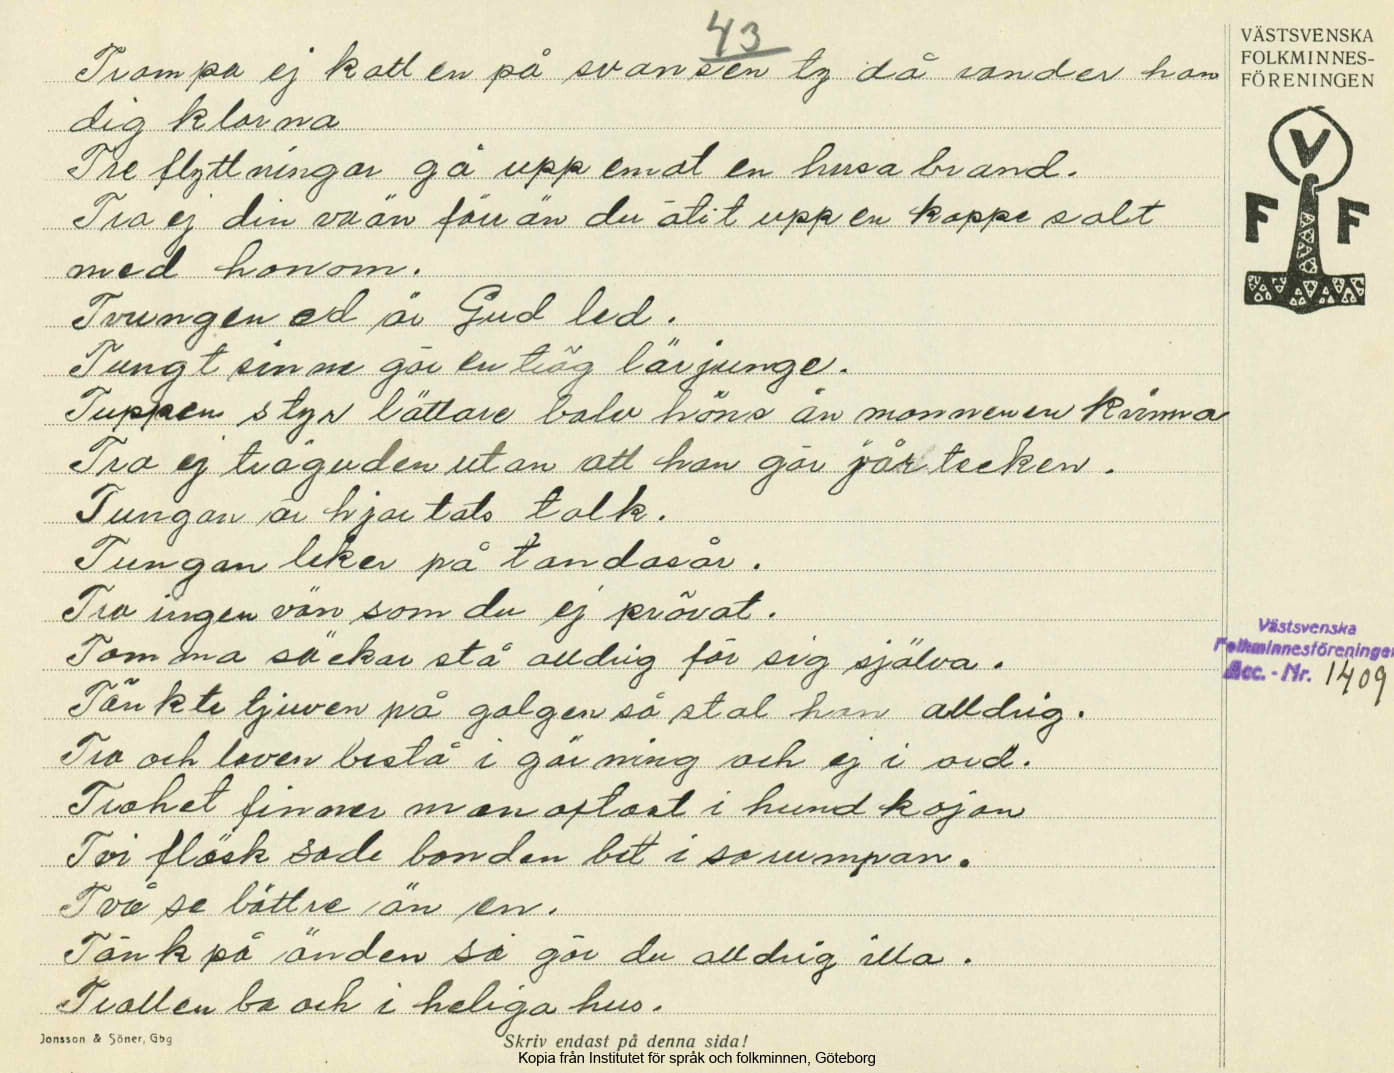 43
VÄSTSVENSKA
FOLKMINNES-
FÖRENINGEN
V
F F
Trampa ej katten på svansen ty då vänder han
dig klorna
Tre flyttningar gå upp emot en husa brand.
Tro ej din vaän förrän du ätit upp en kappe salt
med honom.
Tvungen ed är Gud led.
Tungt sinne gör en trög lärjunge.
Tuppen styr lättare halv höns än mannen en kvinna
Tro ej träguden utan att han gör järtecken.
Tungan är hjärtats tolk.
Tungan leker på tandasår.
Tro ingen vän som du ej prövat.
Tomma säckar stå alldrig för sig själva.
Tänkte tjuven på galgen så stal han alldrig.
Tro och loven bestå i gärning och ej i ord.
Trohet finner man oftast i hundkojan
Tvi fläsk sade bonden bet i sorumpan.
Två se bättre än en.
Tänk på änden så gör du alldrig illa.
Trollen bo och i heliga hus.
Västsvenska
Folkminnesföreningen
Acc. - Nr. 1409
Jonsson & Söner, Gbg
Skriv endast på denna sida!
Kopia från Institutet för språk och folkminnen, Göteborg